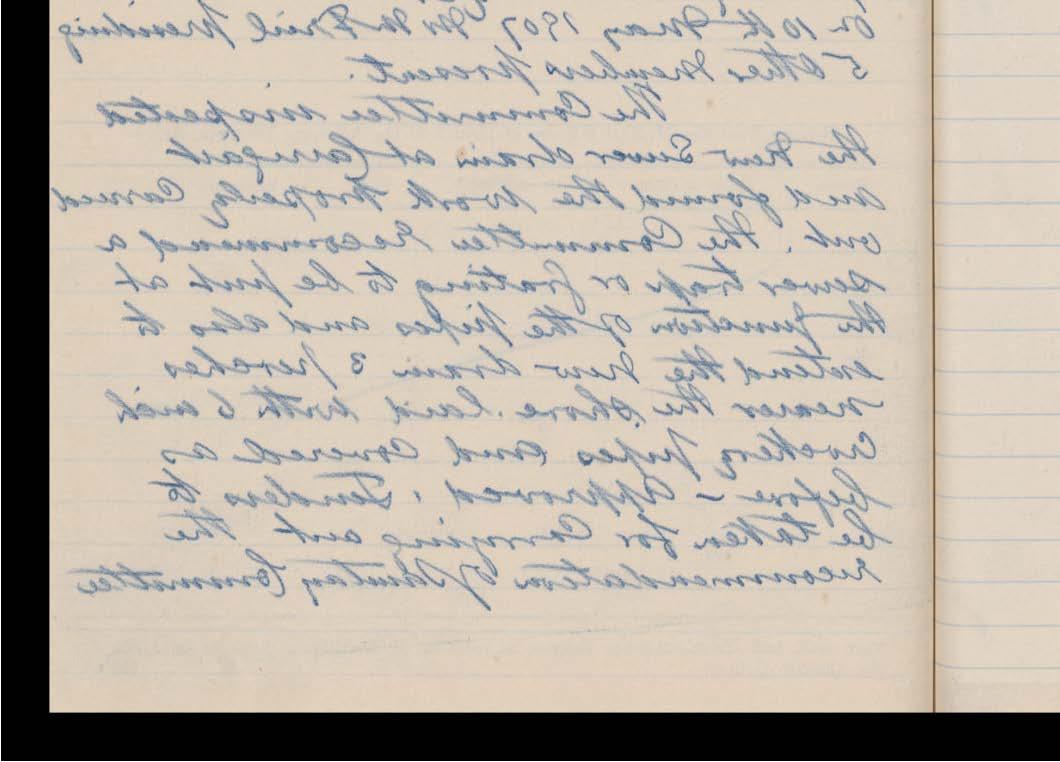 on 10th May 1907 Mr McBriel presiding
5 other members present.
The Committee inspected
the new Sewer drain at Carrigart
and found the work properly Carried
out. The Committee recommend a
sewer trap or grating to be put at
the junction of the pipes and also to
extend the new drain 3 perches
nearer the shore. laid with 6 inch
crockery pipes and Covered as
before – Approved, Tenders to
be taken for Carrying out the
recommendation of Sanitary Committee